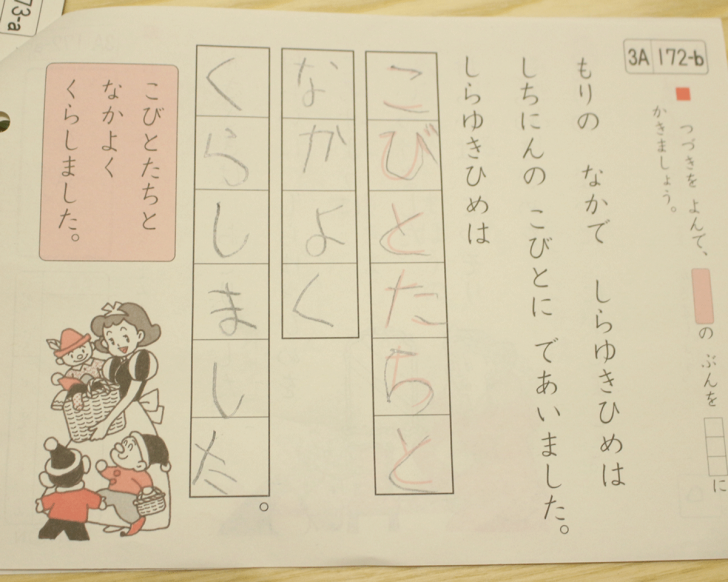 3A 172-b
■ つづきを よんで、 の ぶんを □□□に
かきましょう。
もりの なかで しらゆきひめは
しちにんの こびとに であいました。
しらゆきひめは
こびとたちと
なかよく
くらしました。
こびとたちと
なかよく
くらしました。
73-a